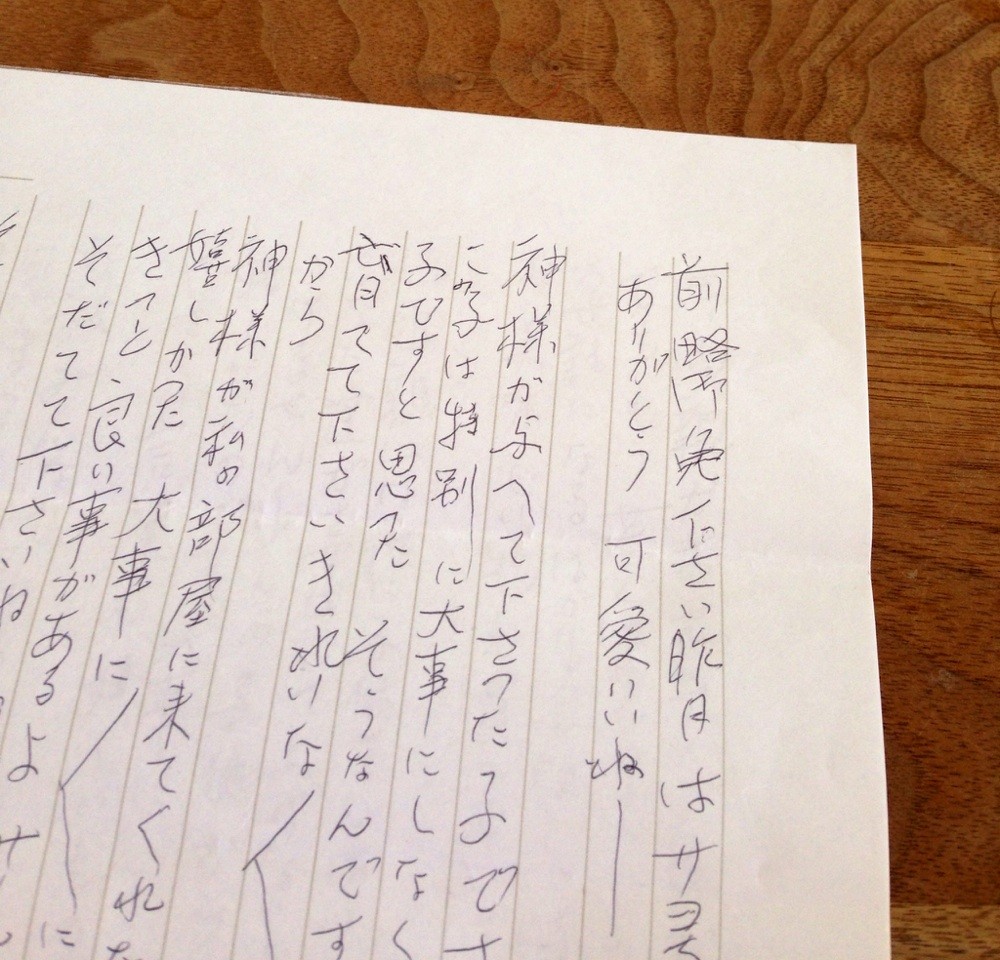 前略御免下さい昨日はサヨ
ありがとう 可愛いいねー
神様がよへて下さった子で
この子は特別に大事にしなく
子ですと思った そうなんです
育てて下さいきれいな〱
から
神様が私の部屋に来てくれた
嬉しかった 大事に〱に
きっと良い事があるよ サ
そだてて下さいね